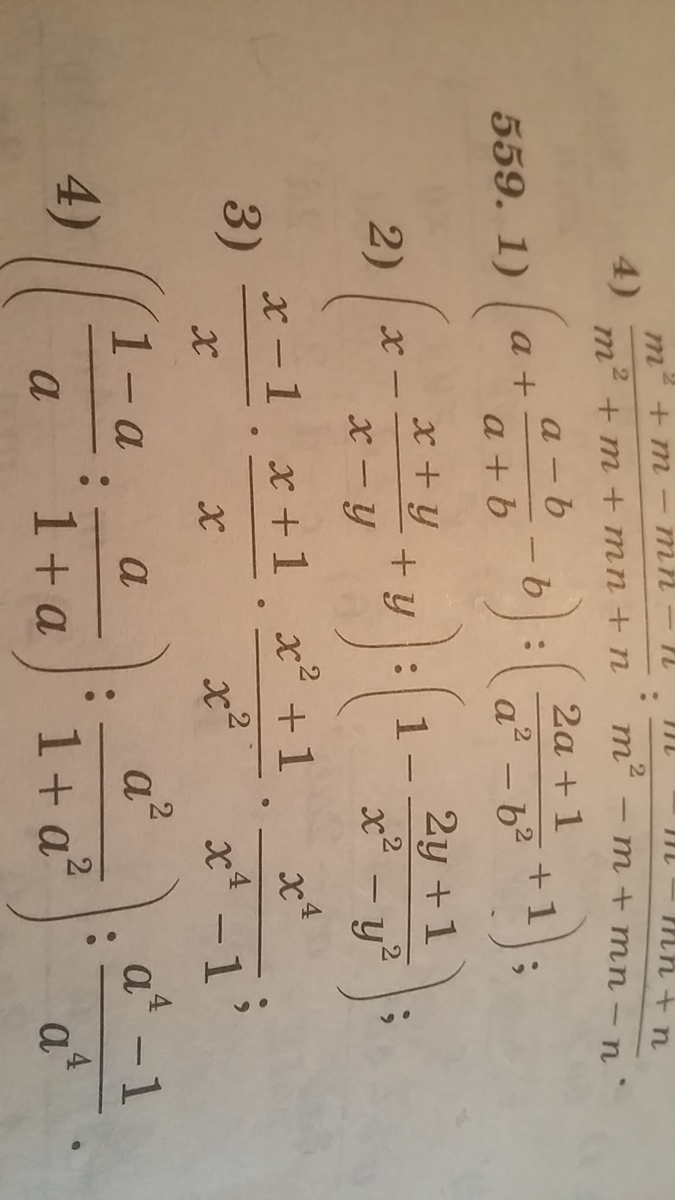 4) (m² + m − mn − n)/(m² + m + mn + n) : /(m² − m + mn − n).
559. 1) (a + (a − b)/(a + b) − b) : ((2a + 1)/(a² − b²) + 1);
2) (x − (x + y)/(x − y) + y) : (1 − (2y + 1)/(x² − y²));
3) (x − 1)/x · (x + 1)/x · (x² + 1)/x² · x⁴/(x⁴ − 1);
4) (((1 − a)/a : a/(1 + a)) : a²/(1 + a²)) : (a⁴ − 1)/a⁴.